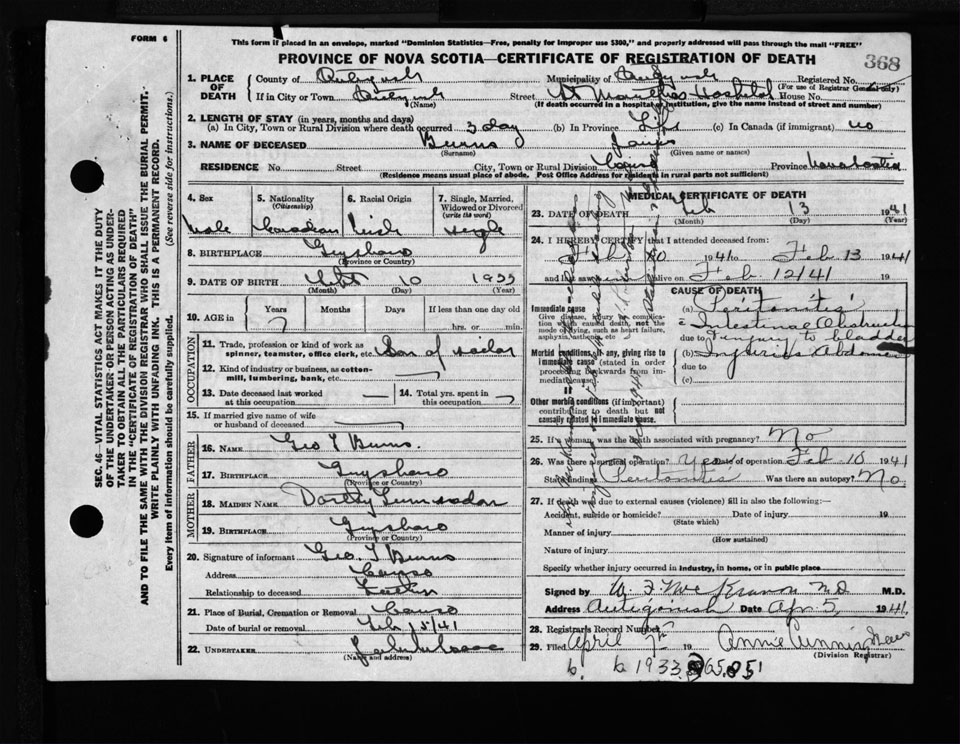 FORM 6
This form if placed in an envelope, marked "Dominion Statistics—Free, penalty for improper use $300," and properly addressed will pass through the mail "FREE"
PROVINCE OF NOVA SCOTIA—CERTIFICATE OF REGISTRATION OF DEATH
368
SEC. 46—VITAL STATISTICS ACT MAKES IT THE DUTY
OF THE UNDERTAKER OR PERSON ACTING AS UNDER-
TAKER TO OBTAIN ALL THE PARTICULARS REQUIRED
IN THE "CERTIFICATE OF REGISTRATION OF DEATH"
AND TO FILE THE SAME WITH THE DIVISION REGISTRAR WHO SHALL ISSUE THE BURIAL PERMIT.
WRITE PLAINLY WITH UNFADING INK. THIS IS A PERMANENT RECORD.
Every item of information should be carefully supplied. (See reverse side for instructions.)
1. PLACE OF DEATH
County of
Municipality of
Registered No.
(For use of Registrar General only)
If in City or Town
(Name)
Street St Marthas Hospital House No.
(If death occurred in a hospital or institution, give the name instead of street and number)
2. LENGTH OF STAY (in years, months and days)
(a) In City, Town or Rural Division where death occurred 3 day (b) In Province Life (c) In Canada (if immigrant) no
3. NAME OF DECEASED Burns James
(Surname) (Given name or names)
RESIDENCE No. Street City, Town or Rural Division Canso Province Nova Scotia
(Residence means usual place of abode. Post Office Address for residents in rural parts not sufficient)
4. Sex
Male
5. Nationality
(Citizenship)
Canadian
6. Racial Origin
Irish
7. Single, Married,
Widowed or Divorced
(write the word)
Single
8. BIRTHPLACE Guysboro
(Province or Country)
9. DATE OF BIRTH 10 1933
(Month) (Day) (Year)
10. AGE in
Years 7 Months Days If less than one day old
hrs. or min.
OCCUPATION
11. Trade, profession or kind of work as
spinner, teamster, office clerk, etc. Son of sailor
12. Kind of industry or business, as cotton-
mill, lumbering, bank, etc.
13. Date deceased last worked
at this occupation
14. Total yrs. spent in
this occupation
15. If married give name of wife
or husband of deceased
FATHER
16. NAME Geo T Burns.
17. BIRTHPLACE Guysboro
(Province or Country)
MOTHER
18. MAIDEN NAME
19. BIRTHPLACE Guysboro
(Province or Country)
20. Signature of informant Geo. T Burns
Address Canso
Relationship to deceased Father
21. Place of Burial, Cremation or Removal Canso
Date of burial or removal Feb 15/41
22. UNDERTAKER
(Name and address)
MEDICAL CERTIFICATE OF DEATH
23. DATE OF DEATH Feb 13 1941
(Month) (Day)
24. I HEREBY CERTIFY that I attended deceased from:
Feb 10 1941 to Feb 13 1941
and last saw alive on Feb. 12/41 19
CAUSE OF DEATH
Immediate cause
Give disease, injury or complica-
tion which caused death, not the
mode of dying, such as heart failure,
asphyxia, asthenia, etc
(a) Peritonitis
Intestinal Obstruction
due to injury to bladder
Morbid conditions, if any, giving rise to
immediate cause (stated in order
proceeding backwards from im-
mediate cause)
(b) Injuries Abdomen
due to
(c)
Other morbid conditions (if important)
contributing to death but not
causally related to immediate cause.
25. If a woman, was the death associated with pregnancy? No
26. Was there a surgical operation? Yes Date of operation Feb 10 1941
State findings Peritonitis Was there an autopsy? No
27. If death was due to external causes (violence) fill in also the following:—
Accident, suicide or homicide? Date of injury 19
(State which)
Manner of injury
(How sustained)
Nature of injury
Specify whether injury occurred in industry, in home, or in public place
Signed by M.D.
Address Antigonish Date Apr 5 1941
28. Registrar's Record Number
29. Filed April 7th 19 Annie Cunningham
(Division Registrar)
b. 1933